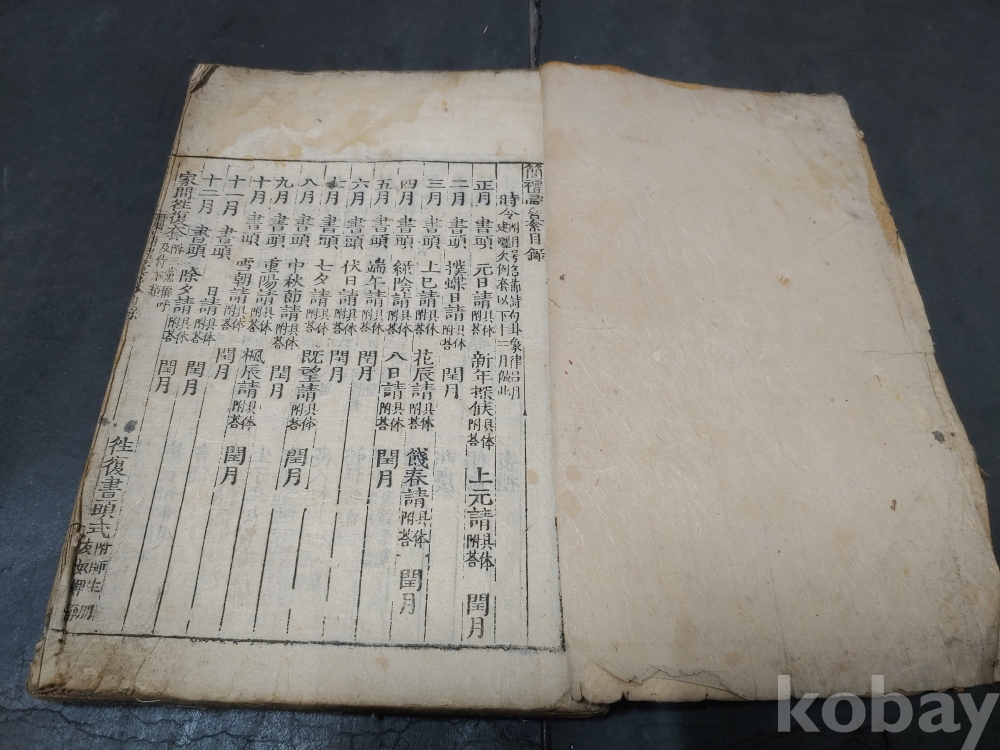 簡禮彙纂目錄
時令
正月 書頭 元日請具体附答 新年探候具体附答 上元請具体附答 閏月
二月 書頭 撲蝶日請具体附答 閏月
三月 書頭 上巳請具体附答 花辰請具体附答 餞春請具体附答 閏月
四月 書頭 綠陰請具体附答 八日請具体附答 閏月
五月 書頭 端午請具体附答 閏月
六月 書頭 伏日請具体附答 閏月
七月 書頭 七夕請具体附答 既望請具体附答 閏月
八月 書頭 中秋節請具体附答 閏月
九月 書頭 重陽請具体附答 楓辰請具体附答 閏月
十月 書頭 雪朝請具体附答 閏月
十一月 書頭 日請具体附答 閏月
十二月 書頭 除夕請具体附答 閏月
家間徃復套 徃復書頭式
kobay